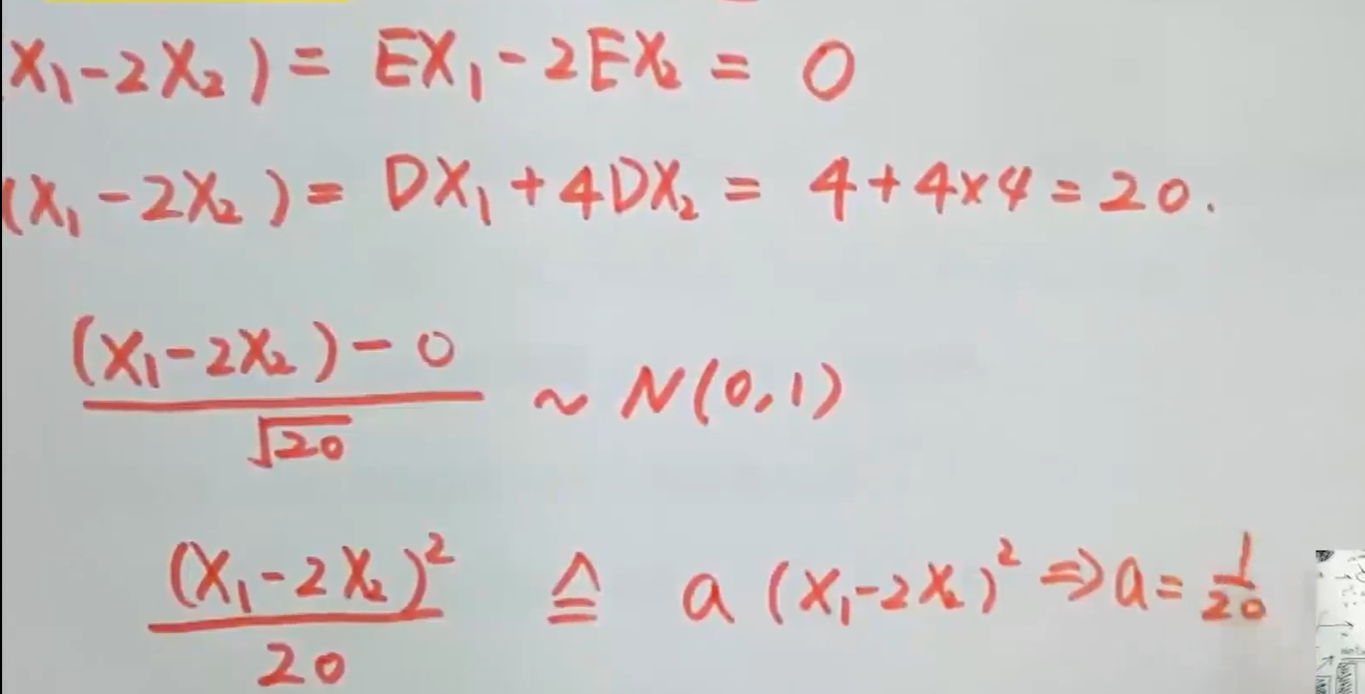 X₁-2X₂) = EX₁-2EX₂ = 0
(X₁-2X₂) = DX₁+4DX₂ = 4+4×4=20.
(X₁-2X₂)-0
√20
~ N(0,1)
(X₁-2X₂)²
20
≙ a (X₁-2X₂)² ⇒ a = 1/20